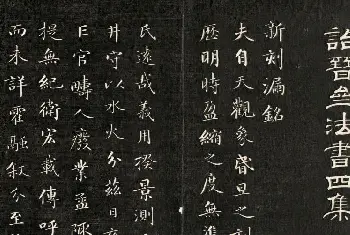 詒晉齋法書四集
新刻漏銘
夫自天觀象昏旦之刻
歷明時盈縮之度無準
氏遠哉義用揆景測
井守以水火分茲日夜
亡官疇人廢業孟陬
提無紀衛宏載傳呼
而未詳霍融叙分至